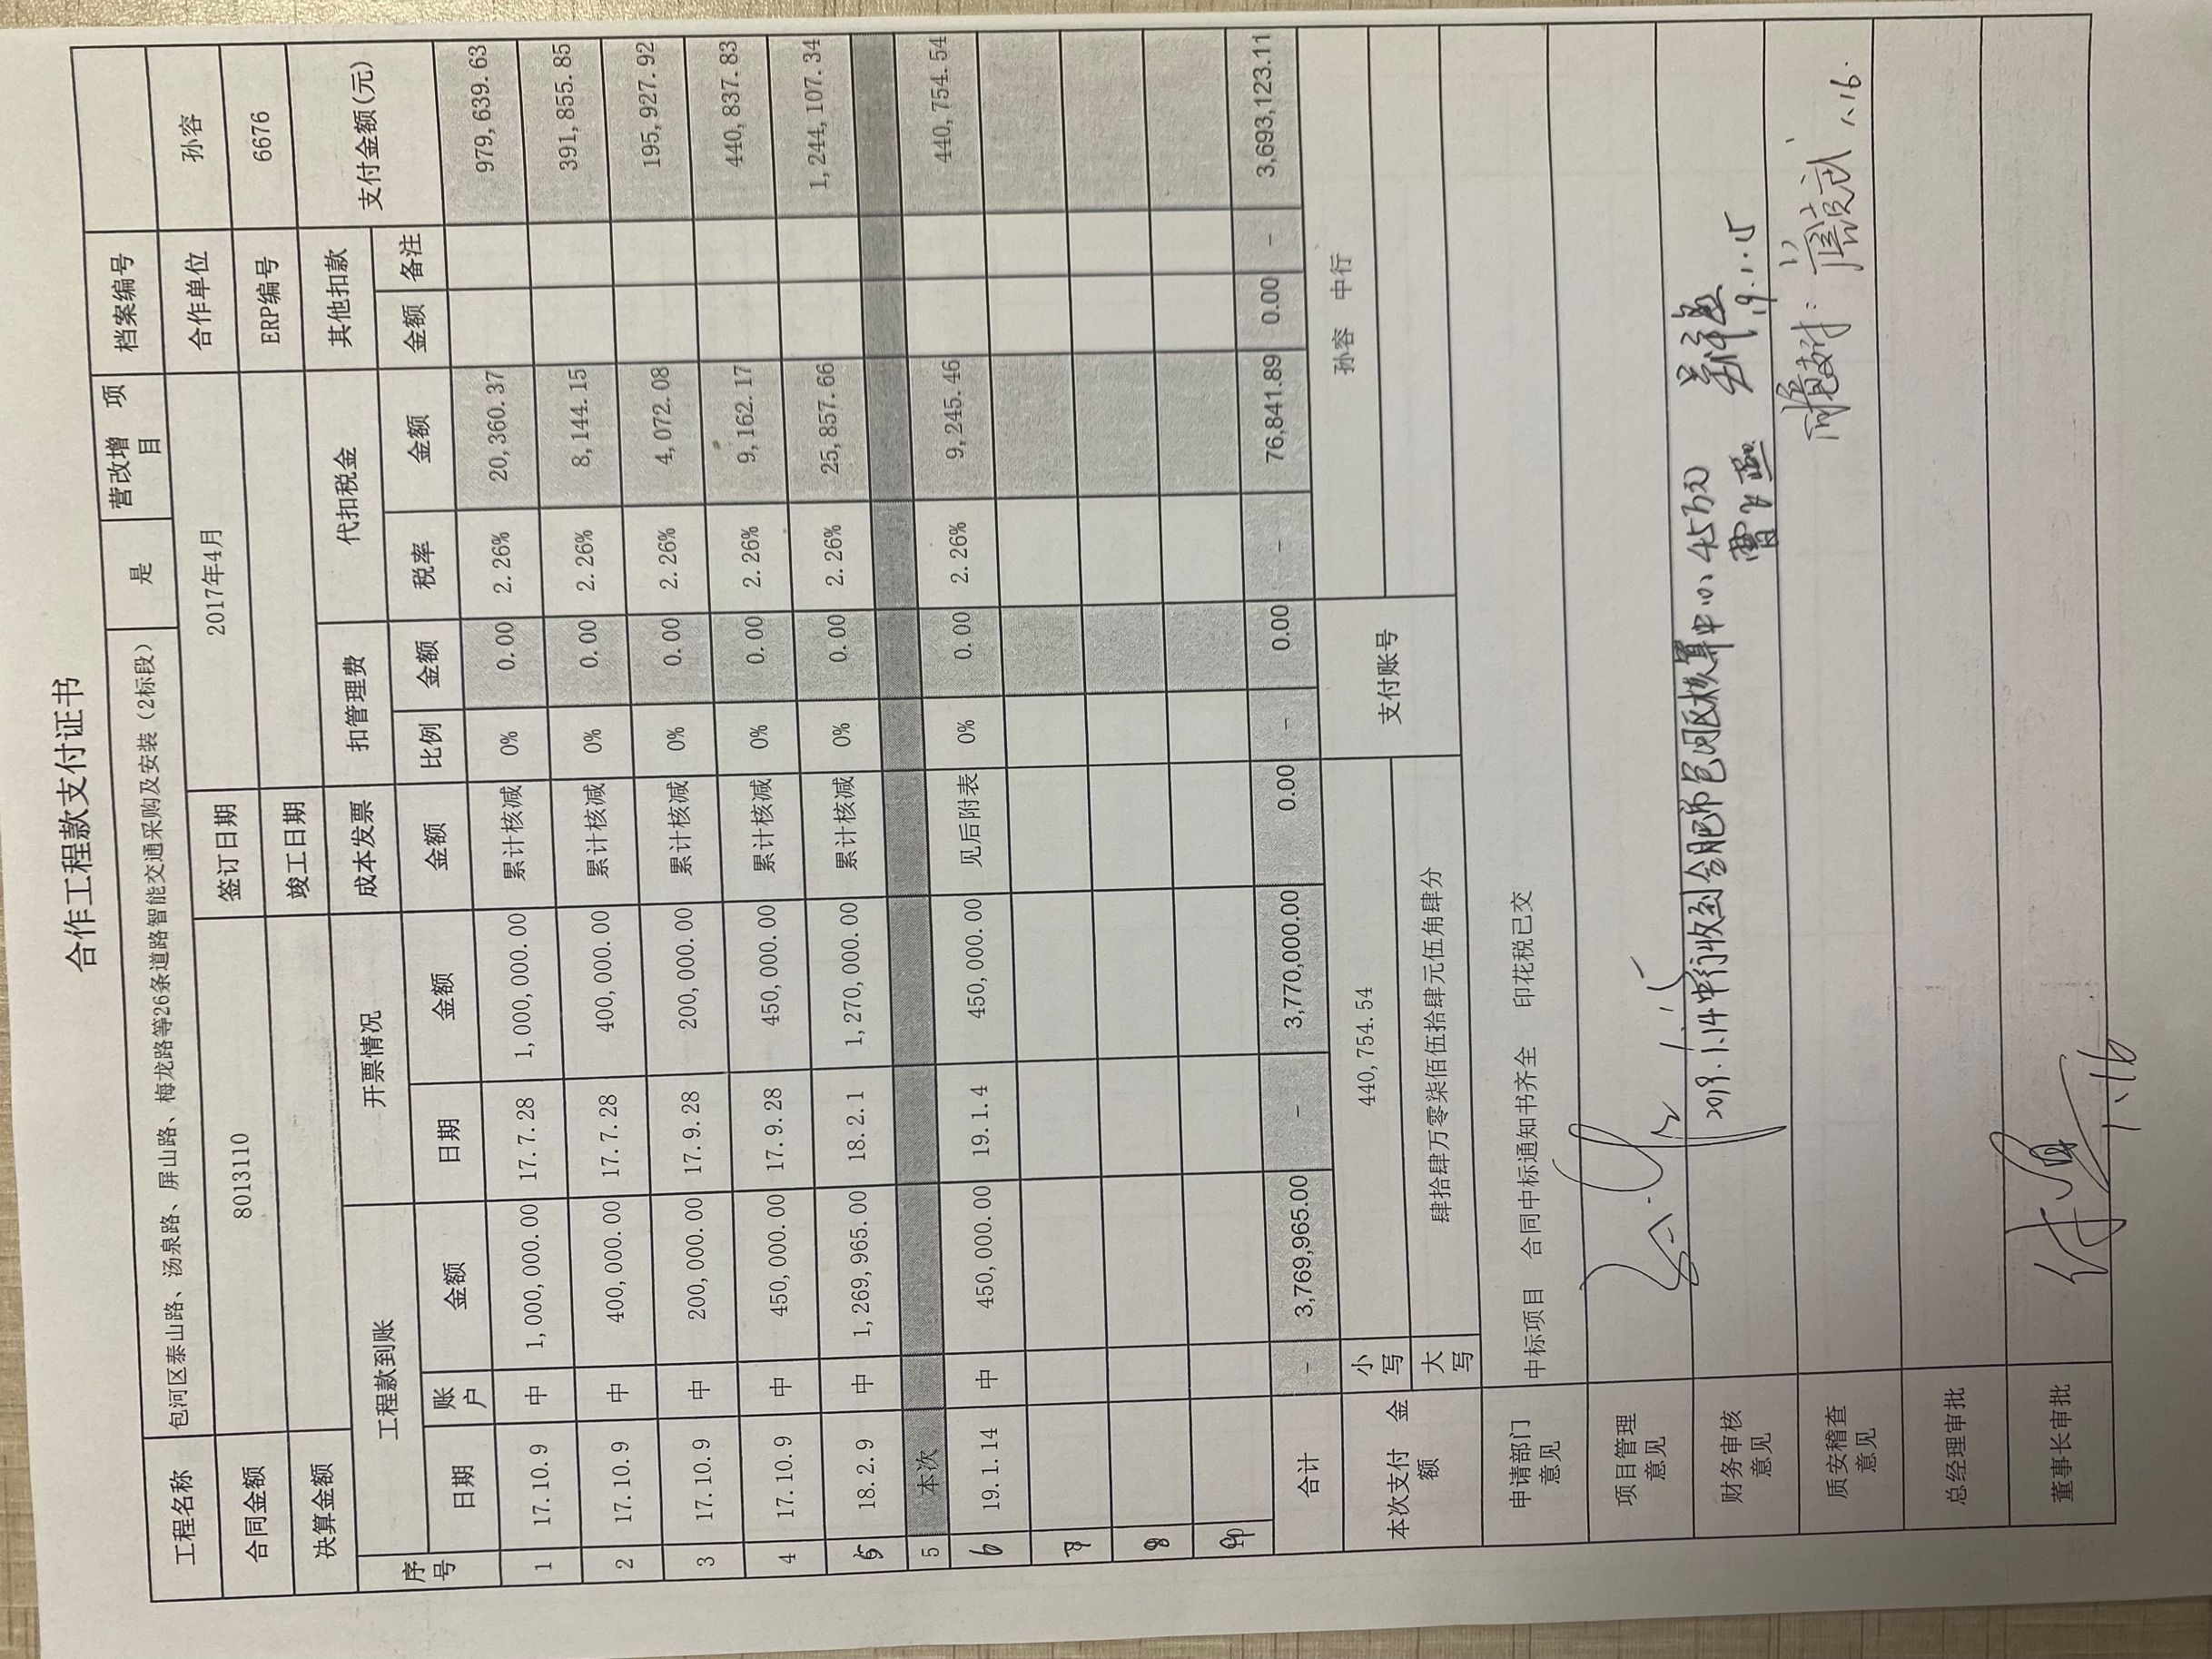 合作工程款支付证书
工程名称 包河区泰山路、汤泉路、屏山路、梅龙路等26条道路智能交通采购及安装（2标段） 是 营改增 项目 档案编号
合同金额 8013110 签订日期 2017年4月 合作单位 孙容
决算金额 竣工日期 ERP编号 6676
序号 工程款到账 开票情况 成本发票 扣管理费 代扣税金 其他扣款 支付金额(元)
日期 账户 金额 日期 金额 金额 比例 金额 税率 金额 金额 备注
1 17.10.9 中 1,000,000.00 17.7.28 1,000,000.00 累计核减 0% 0.00 2.26% 20,360.37 979,639.63
2 17.10.9 中 400,000.00 17.7.28 400,000.00 累计核减 0% 0.00 2.26% 8,144.15 391,855.85
3 17.10.9 中 200,000.00 17.9.28 200,000.00 累计核减 0% 0.00 2.26% 4,072.08 195,927.92
4 17.10.9 中 450,000.00 17.9.28 450,000.00 累计核减 0% 0.00 2.26% 9,162.17 440,837.83
5 18.2.9 中 1,269,965.00 18.2.1 1,270,000.00 累计核减 0% 0.00 2.26% 25,857.66 1,244,107.34
5 本次
6 19.1.14 中 450,000.00 19.1.4 450,000.00 见后附表 0% 0.00 2.26% 9,245.46 440,754.54
合计 - 3,769,965.00 - 3,770,000.00 0.00 - 0.00 - 76,841.89 0.00 - 3,693,123.11
本次支付 金额 小写 440,754.54 支付账号 孙容 中行
大写 肆拾肆万零柒佰伍拾肆元伍角肆分
申请部门意见 中标项目 合同中标通知书齐全 印花税已交
项目管理意见
财务审核意见 2019.1.14中行收到合肥市包河区核算中心45万元
19.1.15
质安稽查意见 1.16.
总经理审批
董事长审批 1.16